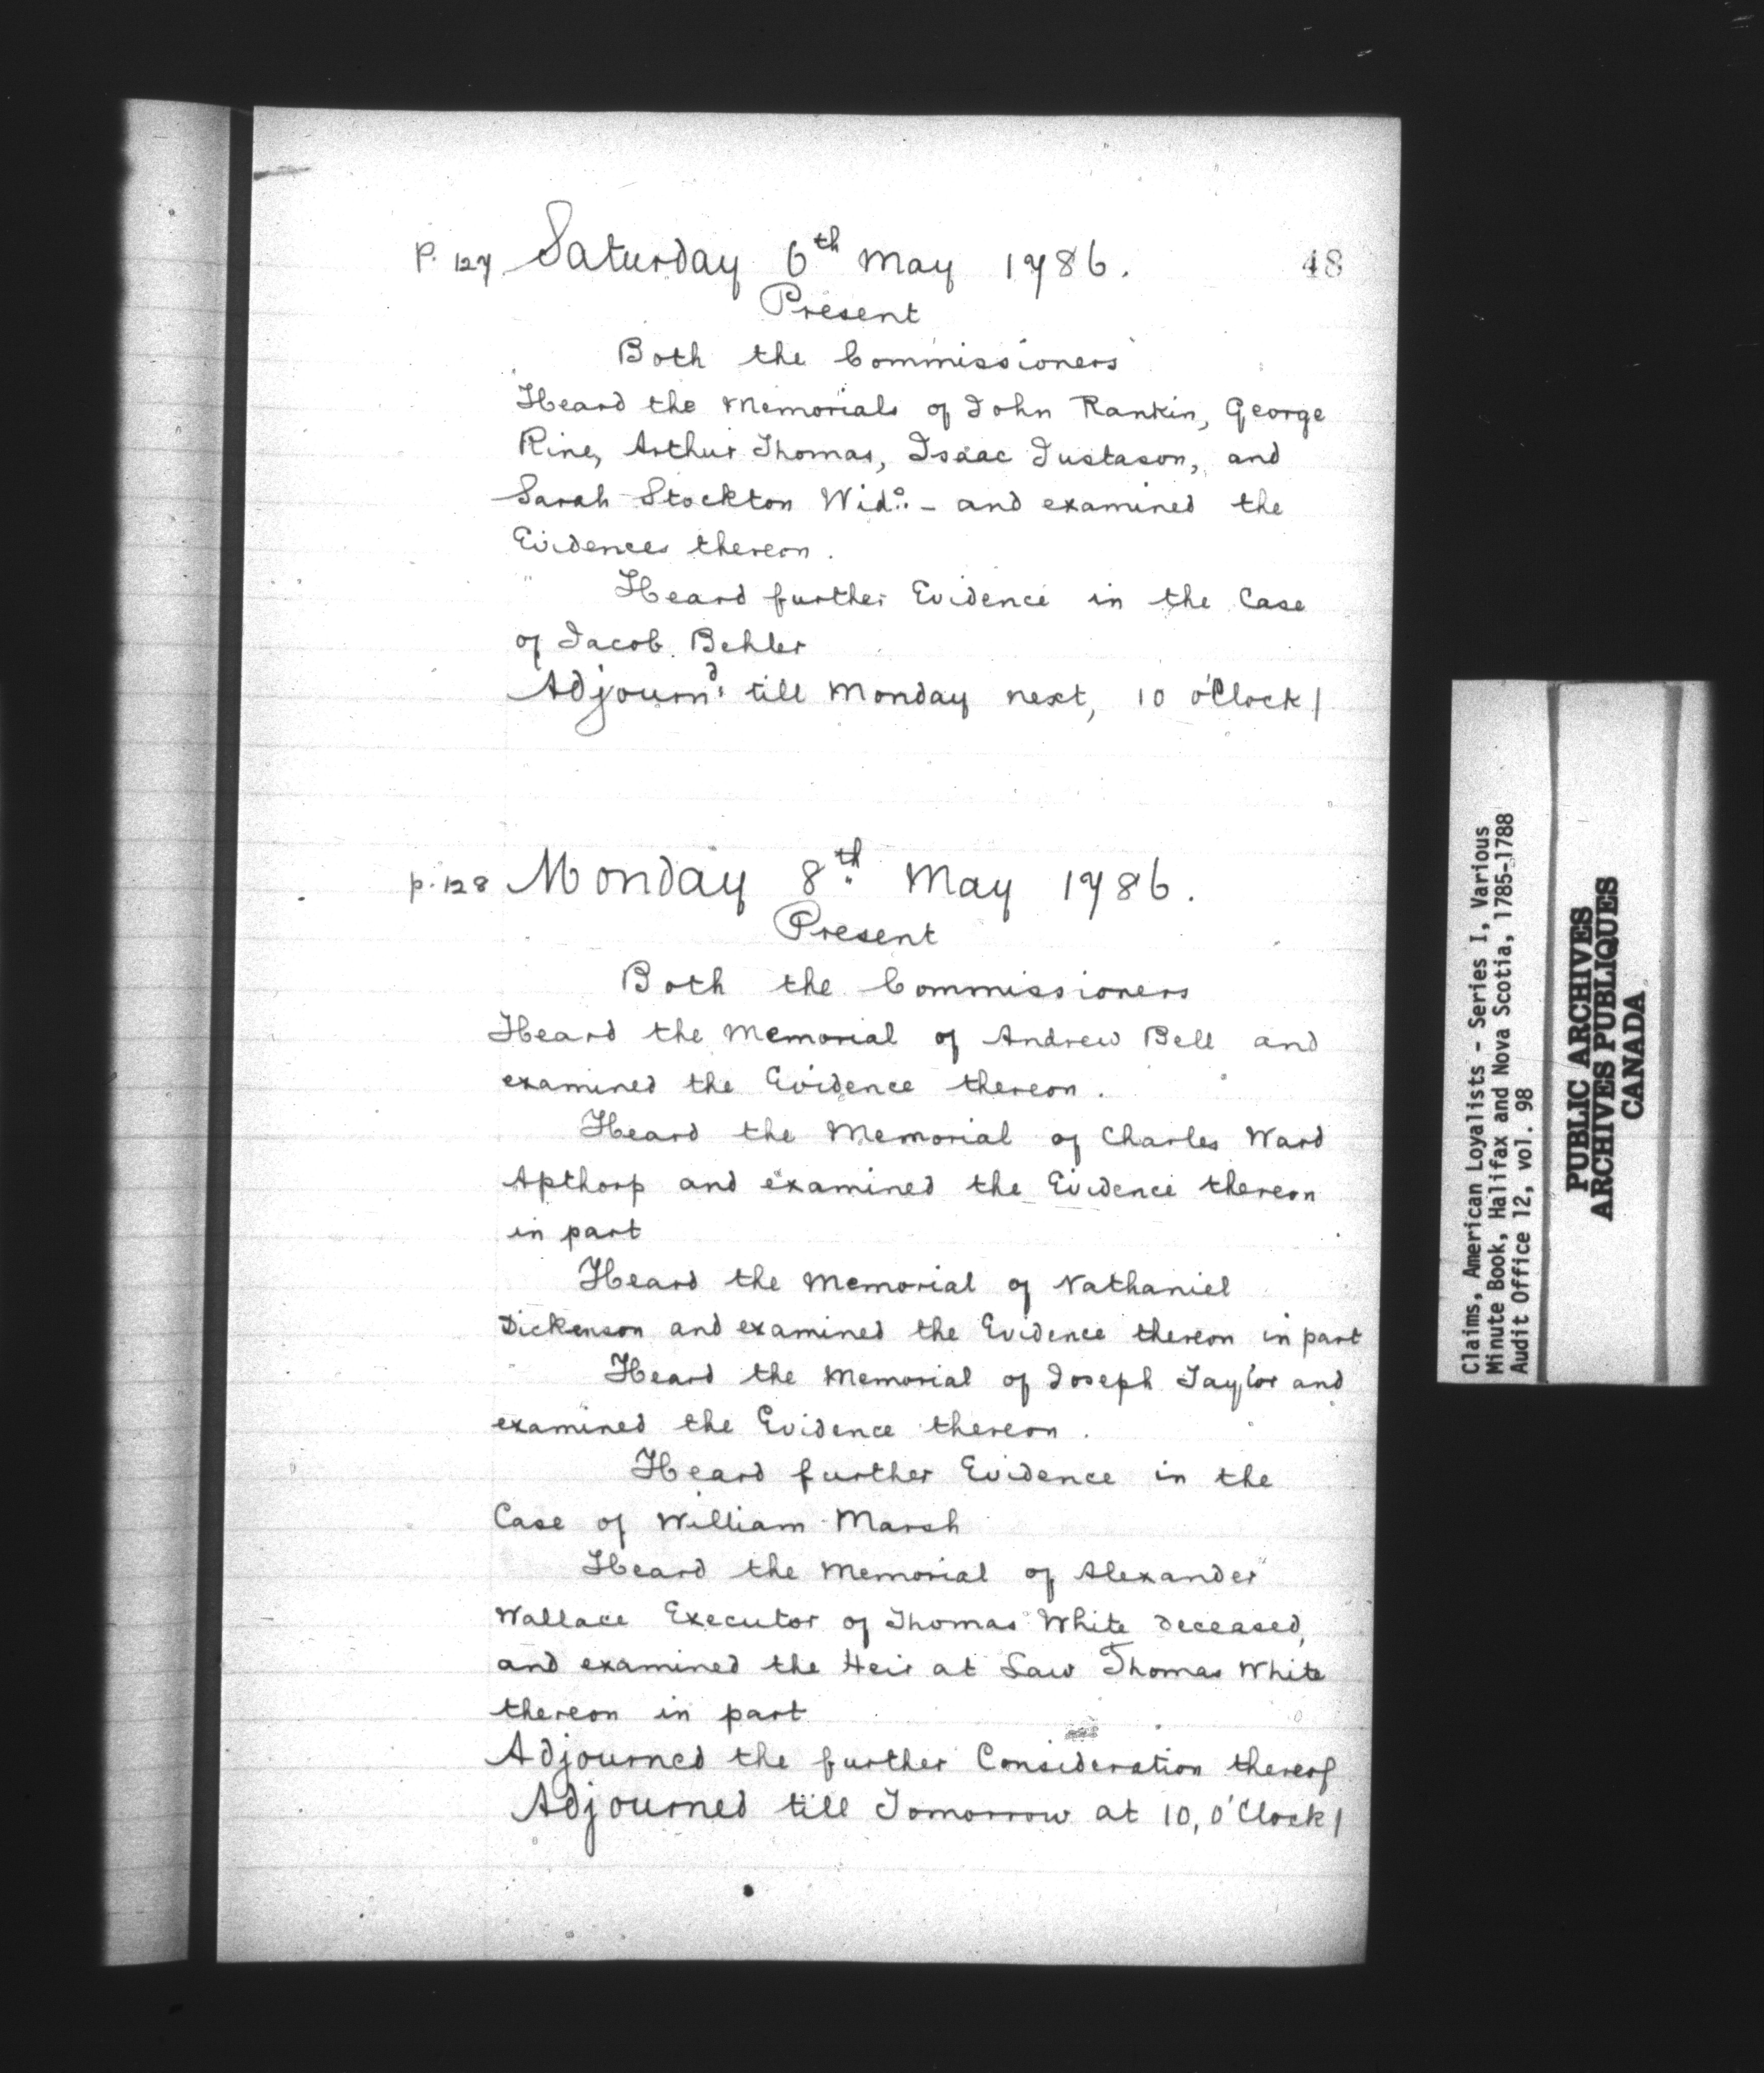 P. 127 Saturday 6th May 1786. 48
Present
Both the Commissioners
Heard the Memorials of John Rankin, George
Rine, Arthur Thomas, Isaac Justason, and
Sarah Stockton Wido. - and examined the
Evidences thereon.
Heard further Evidence in the Case
of Jacob Behler
Adjournd till Monday next, 10 o'Clock/
p. 128 Monday 8th May 1786.
Present
Both the Commissioners
Heard the Memorial of Andrew Bell and
examined the Evidence thereon.
Heard the Memorial of Charles Ward
Apthorp and examined the Evidence thereon
in part
Heard the Memorial of Nathaniel
Dickenson and examined the Evidence thereon in part
Heard the Memorial of Joseph Taylor and
examined the Evidence thereon.
Heard further Evidence in the
Case of William Marsh
Heard the Memorial of Alexander
Wallace Executor of Thomas White deceased,
and examined the Heir at Law Thomas White
thereon in part
Adjourned the further Consideration thereof
Adjourned till Tomorrow at 10, o'Clock/
Claims, American Loyalists - Series I, Various
Minute Book, Halifax and Nova Scotia, 1785-1788
Audit Office 12, vol. 98
PUBLIC ARCHIVES
ARCHIVES PUBLIQUES
CANADA